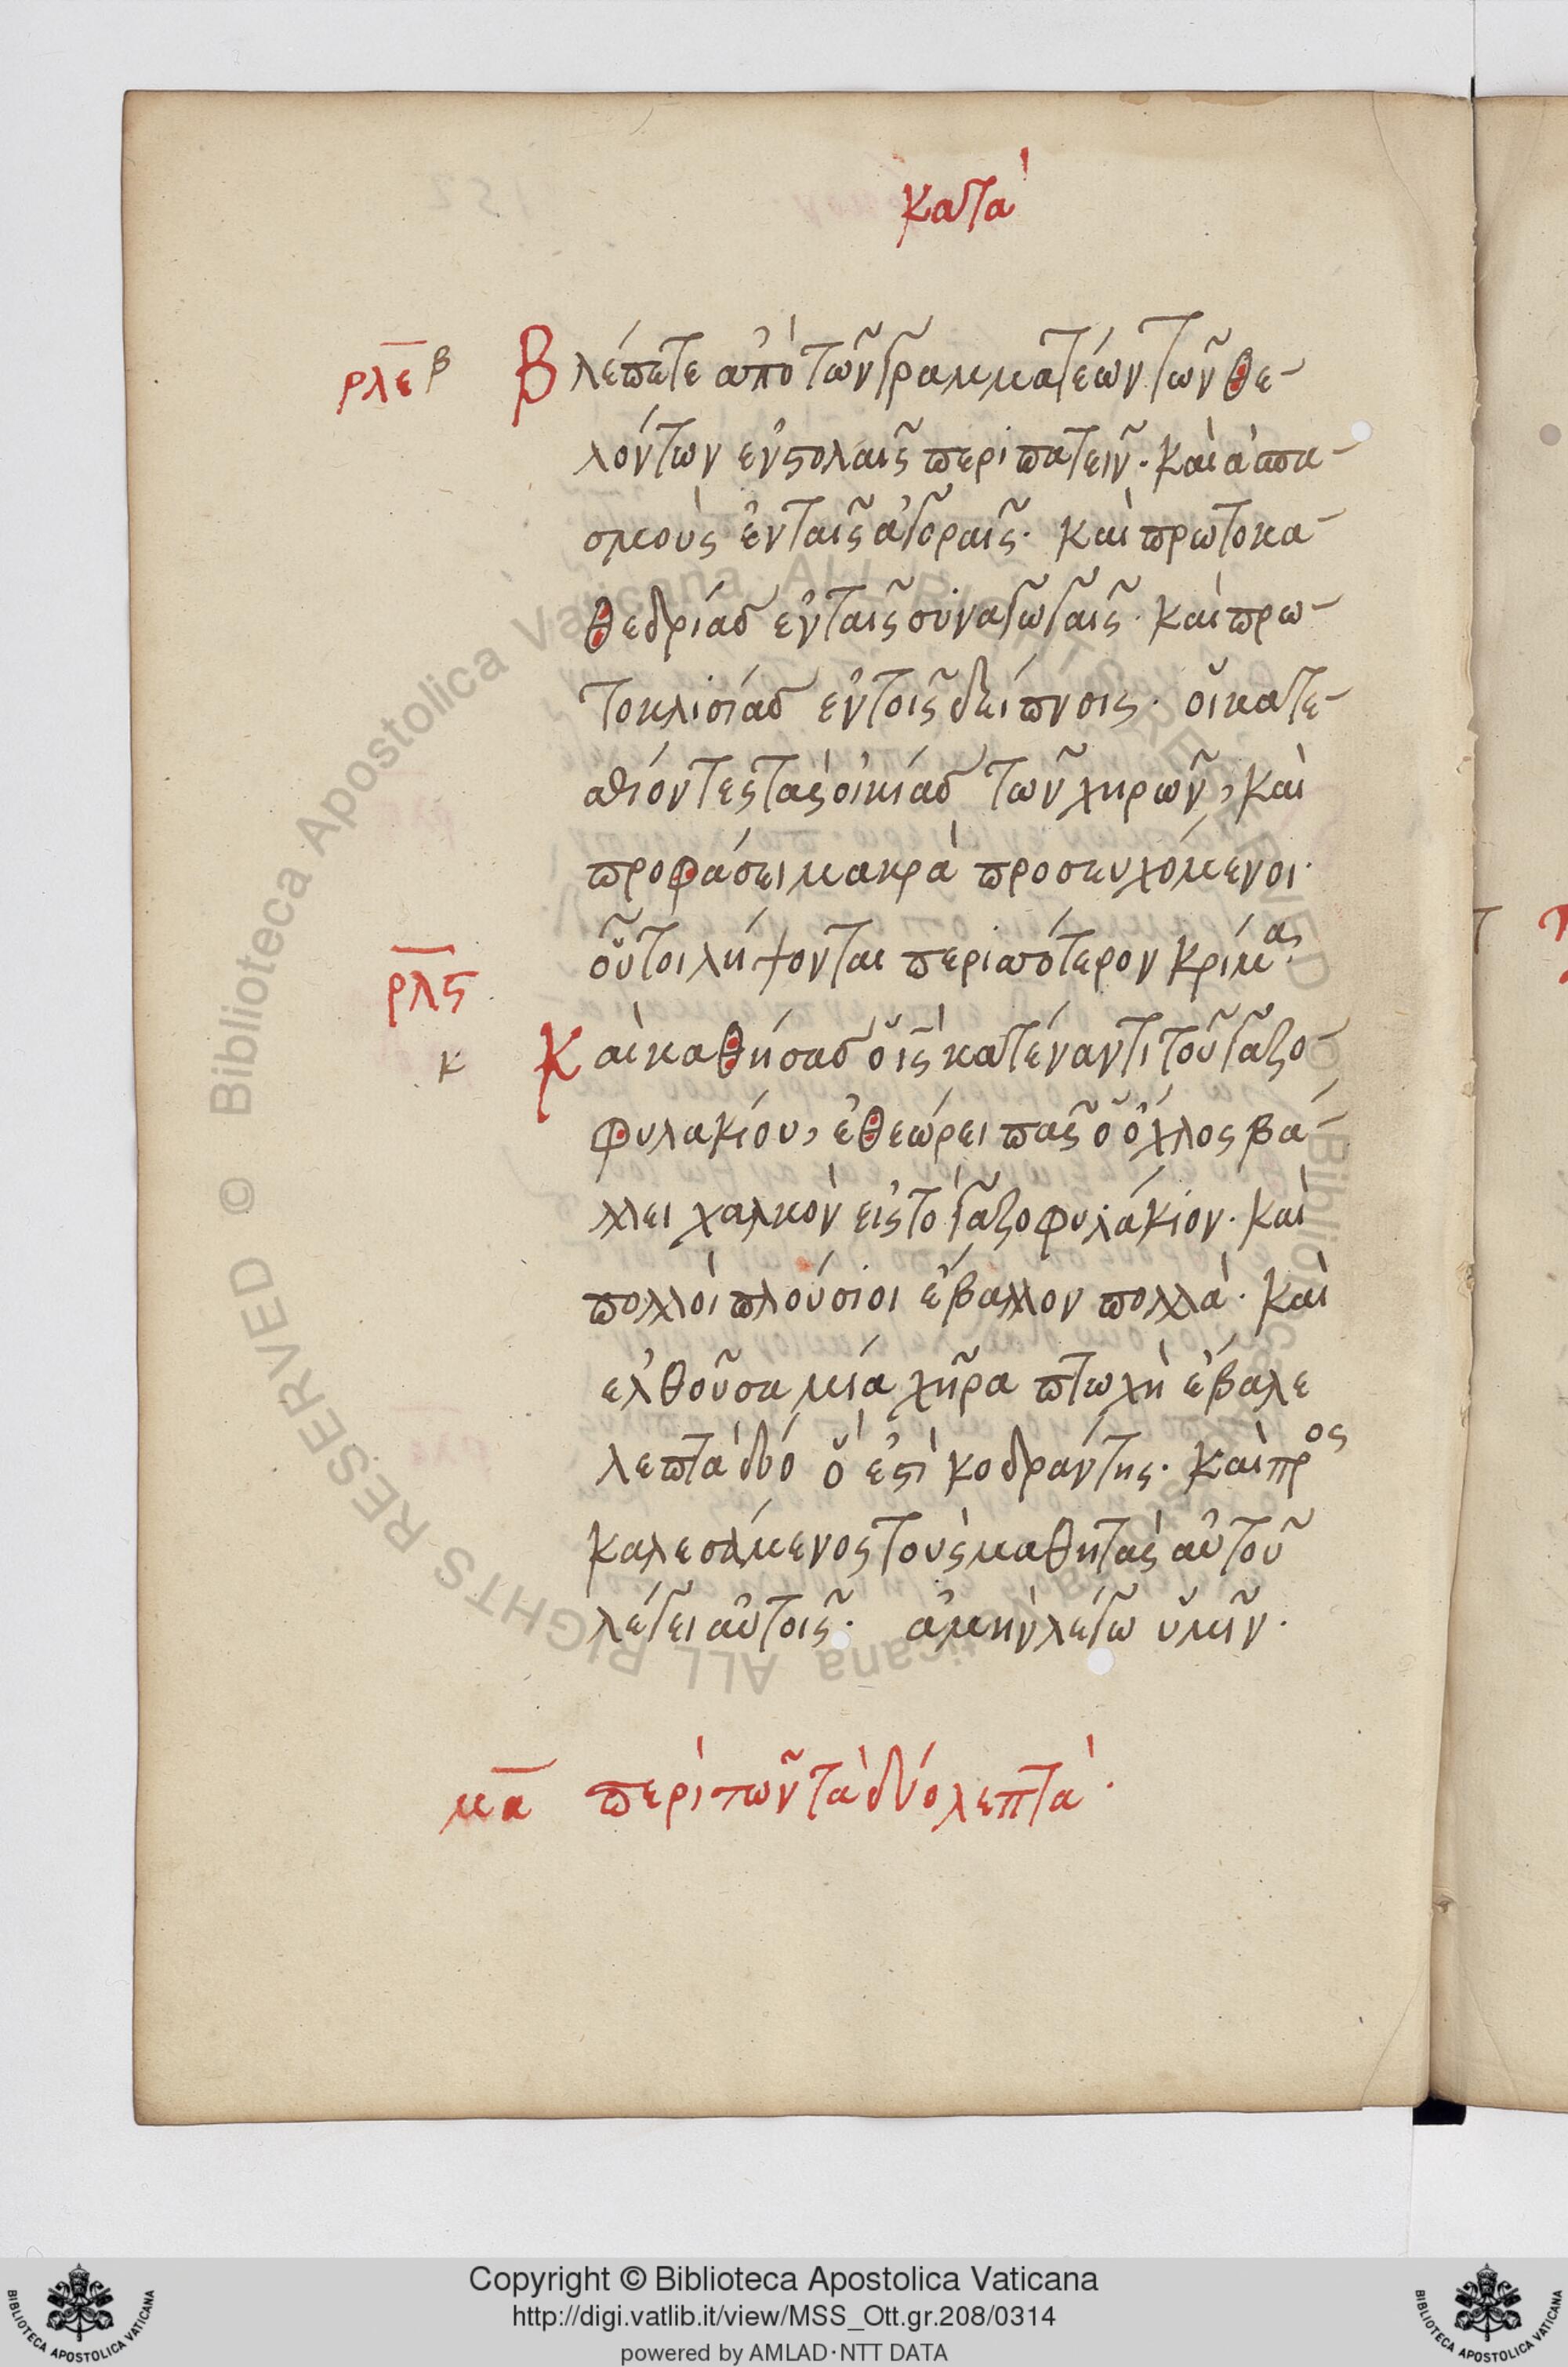 κατὰ
ρλε β Βλέπετε ἀπὸ τῶν γραμματέων τῶν θε-
λόντων ἐν στολαῖς περιπατεῖν· καὶ ἀσπα-
σμοὺς ἐν ταῖς ἀγοραῖς· καὶ πρωτοκα-
θεδρίας ἐν ταῖς συναγωγαῖς· καὶ πρω-
τοκλισίας ἐν τοῖς δείπνοις· οἱ κατε-
σθίοντες τὰς οἰκίας τῶν χηρῶν, καὶ
προφάσει μακρὰ προσευχόμενοι·
οὗτοι λήψονται περισσότερον κρίμα·
ρλς
κ Καὶ καθήσας ὁ ις κατέναντι τοῦ γαζο-
φυλακίου, ἐθεώρει πᾶς ὁ ὄχλος βά-
λλει χαλκὸν εἰς τὸ γαζοφυλάκιον· καὶ
πολλοὶ πλούσιοι ἔβαλλον πολλά· καὶ
ἐλθοῦσα μία χήρα πτωχὴ ἔβαλε
λεπτὰ δύο ὅ ἐστὶ κοδράντης· καὶ προς
καλεσάμενος τοὺς μαθητὰς αὐτοῦ
λέγει αὐτοῖς· ἀμὴν λέγω ὑμῖν·
μα περὶ τῶν τὰ δύο λεπτά·
© Biblioteca Apostolica Vaticana ALL RIGHTS RESERVED
Copyright © Biblioteca Apostolica Vaticana
http://digi.vatlib.it/view/MSS_Ott.gr.208/0314
powered by AMLAD·NTT DATA
BIBLIOTECA APOSTOLICA VATICANA
BIBLIOTECA APOSTOLICA VATICANA